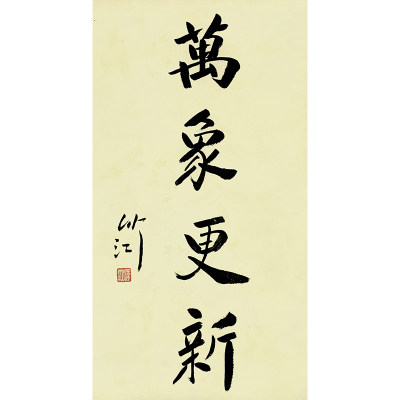 萬象更新
竹江